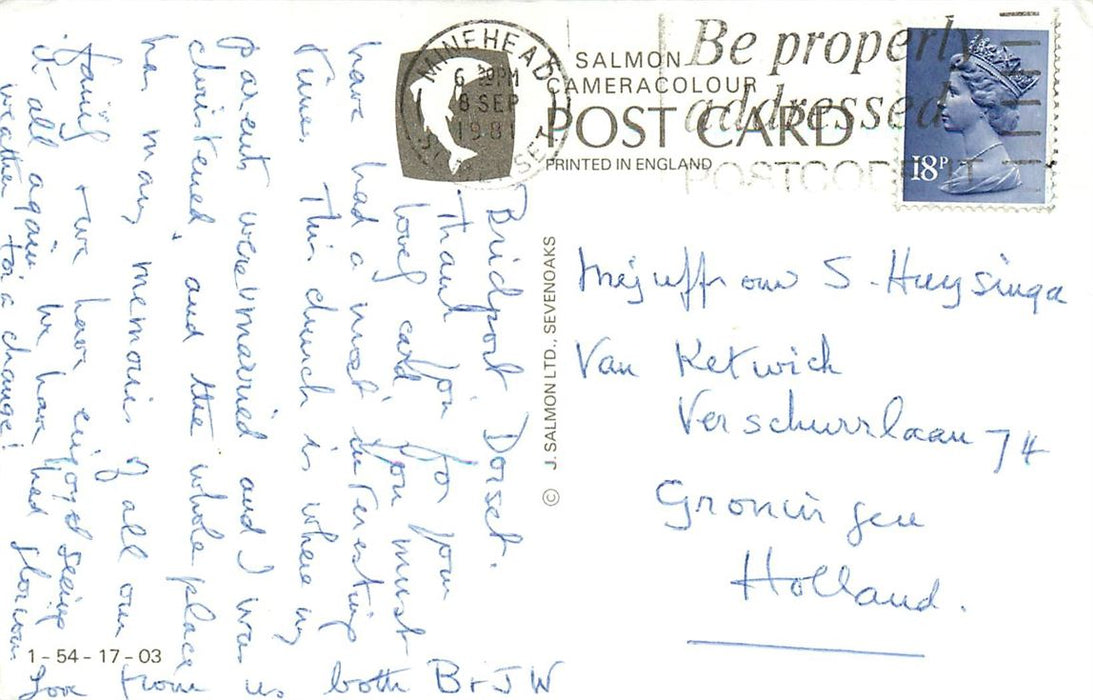 Bridport. Dorset.
Thank you for your
lovely card you must
have had a most interesting
time. This church is where my
Parents were married and I was
christened, and the whole place
has many memories of all our
family & we have enjoyed seeing
it all again, we have had glorious
weather for a change!
Love from us both B & J W
MINEHEAD
6 PM
8 SEP
1981
SOMERSET
Be properly
addressed
POSTCODE IT
SALMON
CAMERACOLOUR
POST CARD
PRINTED IN ENGLAND
18P
© J. SALMON LTD., SEVENOAKS
Mejuffrouw S. Huysinga
Van Ketwich
Verschuurlaan 74
Groningen
Holland.
1-54-17-03